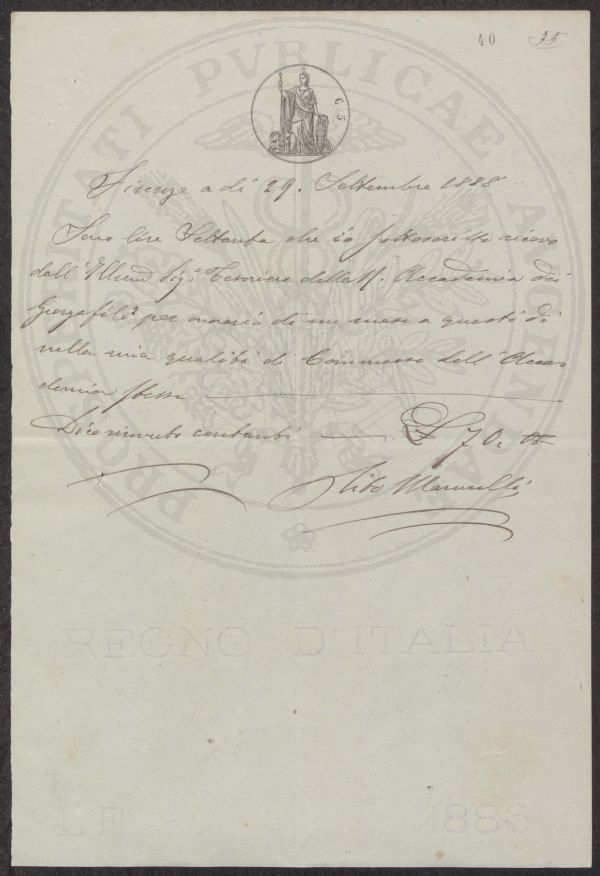 40 35
PROSPERITATI PVBLICAE AVGENDAE
C. 5.
Firenze a dì 29. Settembre 1888
Sono lire Settanta che io sottoscritto ricevo
dall' Illmo Sig. Tesoriere della R. Accademia dei
Georgofili per onorario di un mese a questo dì
nella mia qualità di Commesso dell' Acca
demia stessa
Dico ricevuto contanti £ 70. 00
Marucelli
REGNO D'ITALIA
L F 1886